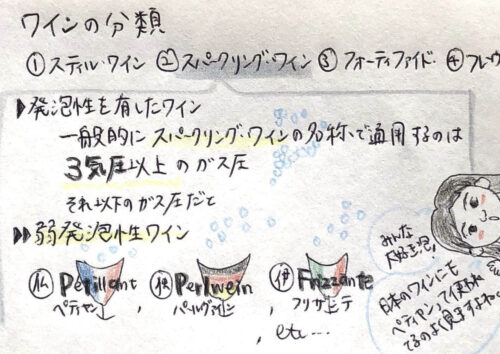 ワインの分類
①スティル・ワイン ②スパークリング・ワイン ③フォーティファイド・ ④フレーヴ
▶発泡性を有したワイン
一般的に スパークリング・ワインの名称で通用するのは
3気圧以上のガス圧
それ以下のガス圧だと
▶▶弱発泡性ワイン
仏 Pétillant ペティヤン、 独 Perlwein パールヴァイン、 伊 Frizzante フリザンテ
, etc…
みんな
大好き泡!
日本のワインにも
ペティヤンって使われ
てるのよく見ますよね。